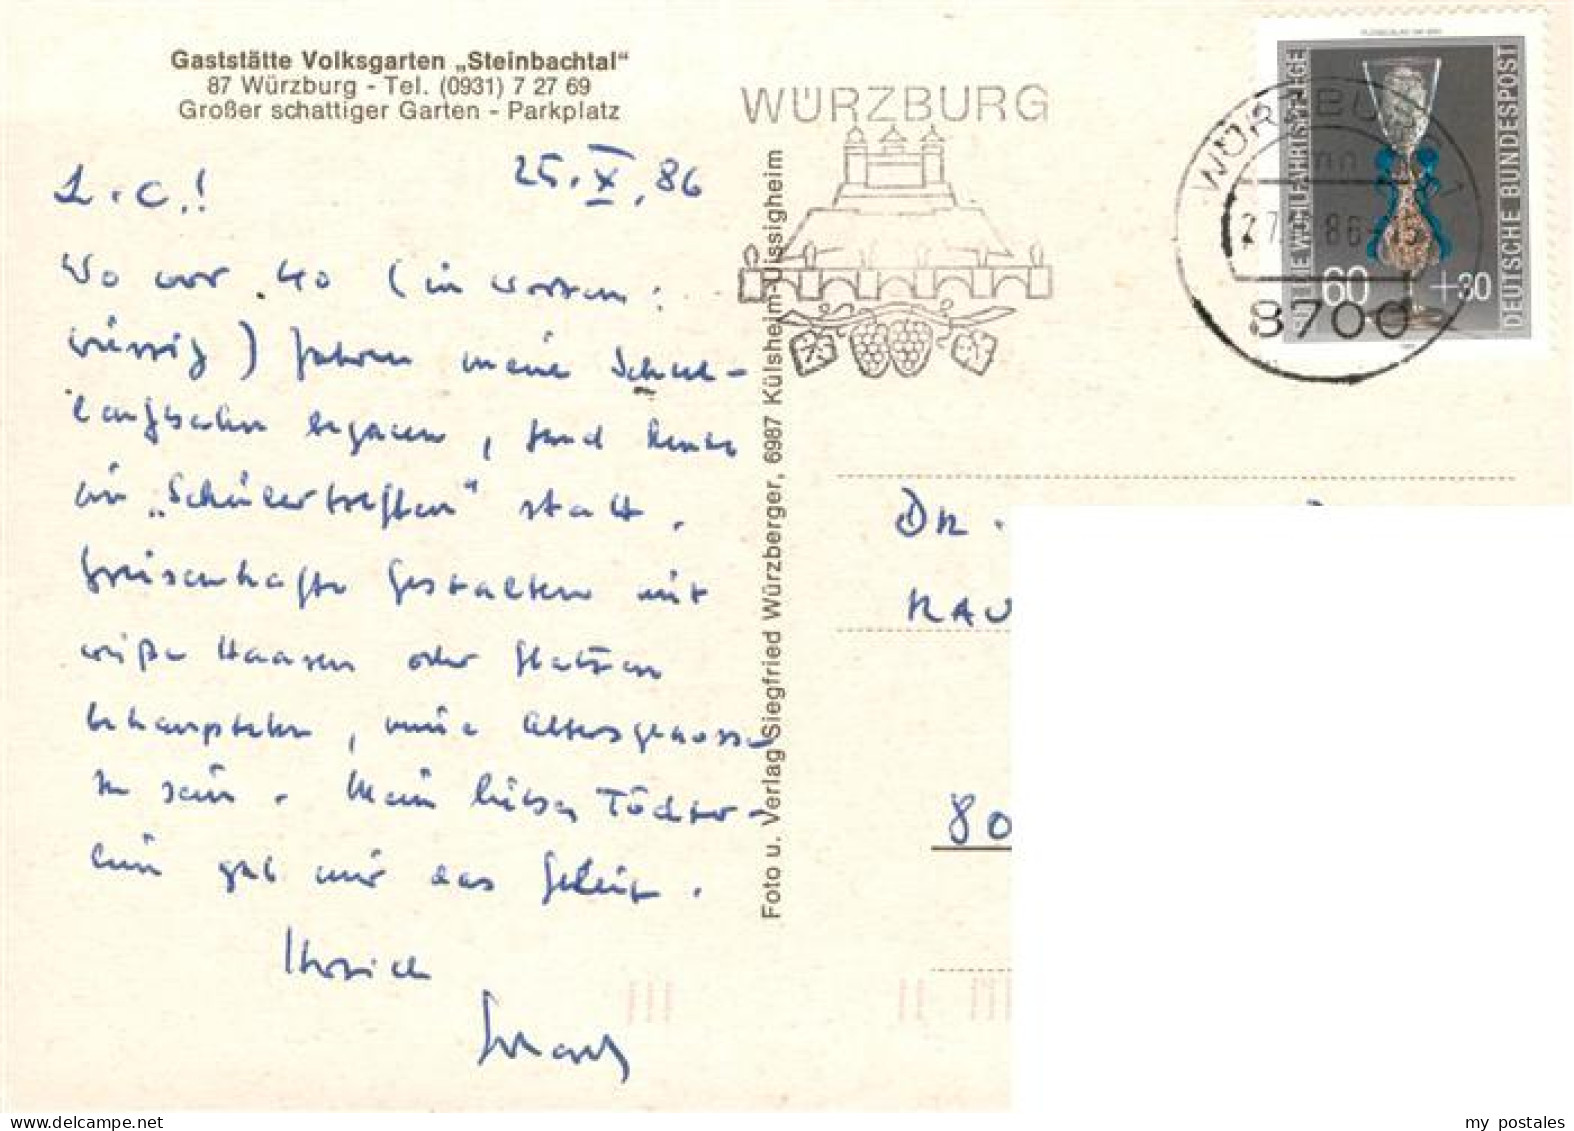 Gaststätte Volksgarten „Steinbachtal"
87 Würzburg - Tel. (0931) 7 27 69
Großer schattiger Garten - Parkplatz
25.X.86
L.C.!
Wo vor 40 (in Worten:
vierzig) Jahren meine Schul-
laufbahn begann, fand heute
ein „Schülertreffen" statt.
Greisenhafte Gestalten mit
weißen Haaren oder Glatzen
behaupteten, meine Altersgenossen
zu sein. Mein liebes Töchter-
lein gab mir das Geleit.
Herzlich
Foto u. Verlag Siegfried Würzberger, 6987 Külsheim-Uissigheim
WÜRZBURG
WÜRZBURG 1
27. 86-15
8700
FÜR DIE WOHLFAHRTSPFLEGE
60 +30
DEUTSCHE BUNDESPOST
DR.
RAU
80
my postales